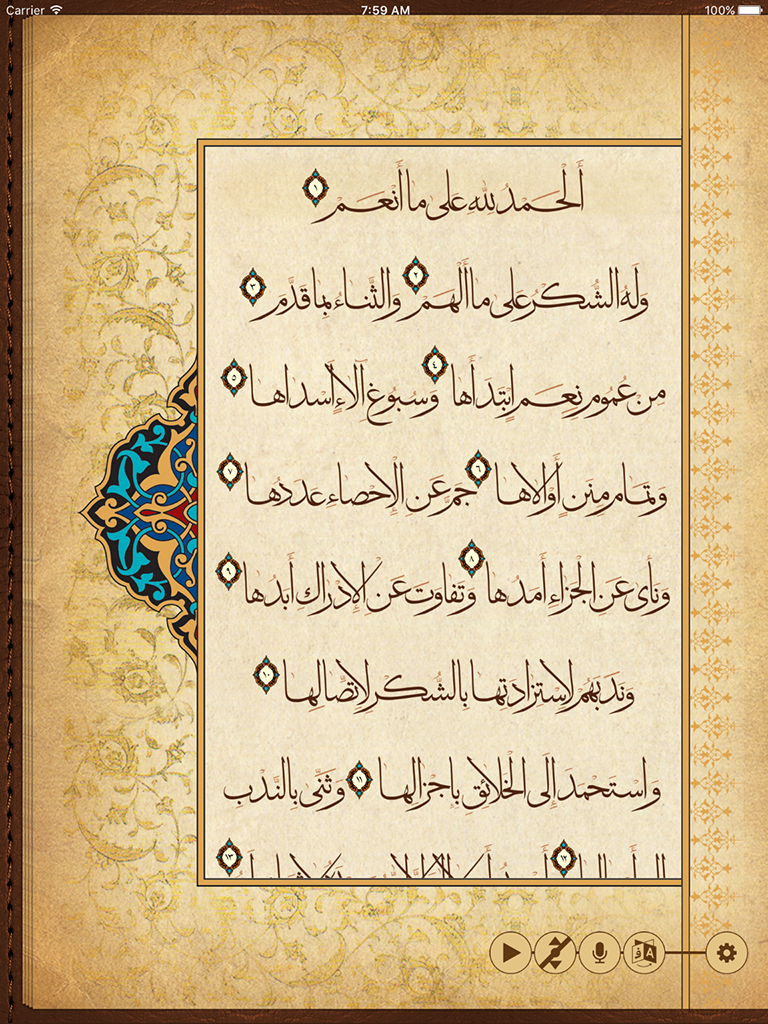 Carrier 7:59 AM 100%
أَلْحَمْدُ لِلّهِ عَلى ما أَنْعَمَ ١
وَلَهُ الشُّكْرُ عَلى ما أَلْهَمَ ٢ وَالثَّناءُ بِما قَدَّمَ ٣
مِنْ عُمُومِ نِعَمٍ ابْتَدَأَها ٤ وَسُبُوغِ آلاءٍ أَسْداها ٥
وَتَمامِ مِنَنٍ أَوْلاها ٦ جَمَّ عَنِ الْإِحْصاءِ عَدَدُها ٧
وَنَأى عَنِ الْجَزاءِ أَمَدُها ٨ وَتَفاوَتَ عَنِ الْإِدْراكِ أَبَدُها ٩
وَنَدَبَهُمْ لِاسْتِزادَتِها بِالشُّكْرِ لِاتِّصالِها ١٠
وَاسْتَحْمَدَ إِلَى الْخَلائِقِ بِإِجْزالِها ١١ وَثَنّى بِالنَّدْبِ
١٢ ١٣